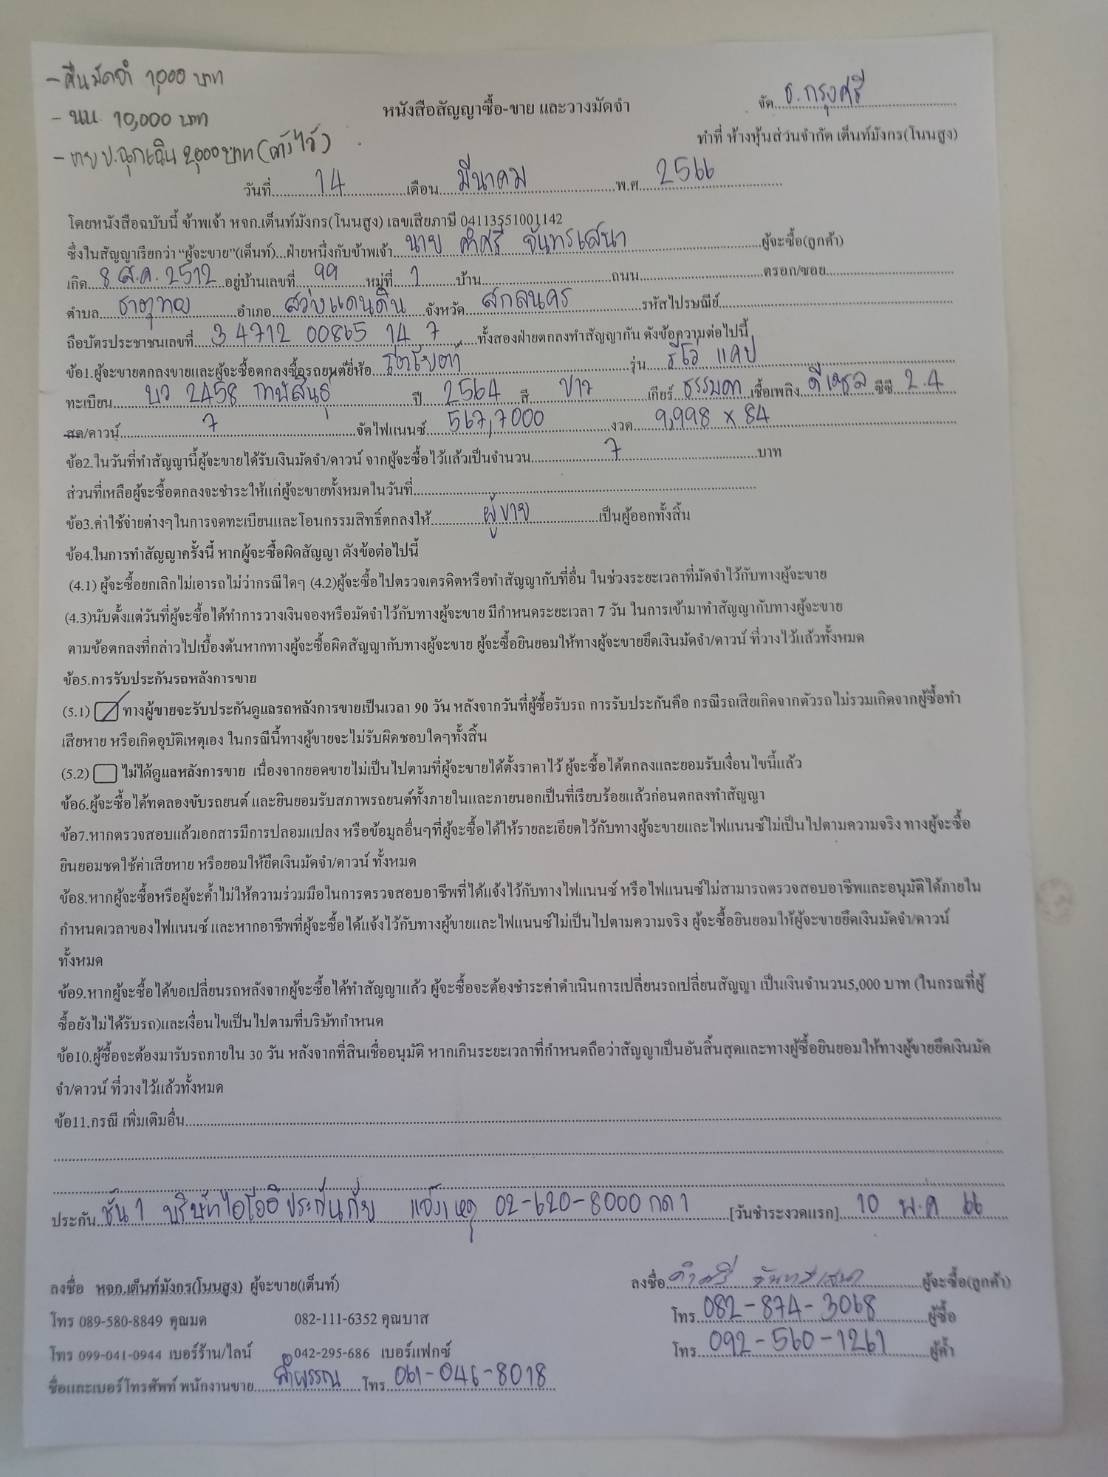 - คืนมัดจำ 1,000 บาท
- นน 10,000 บาท
- เทย ป.ฉุกเฉิน 2,000 บาท (ค้างไว้)
หนังสือสัญญาซื้อ-ขาย และวางมัดจำ
จัด ธ.กรุงศรี
ทำที่ ห้างหุ้นส่วนจำกัด เต็นท์มังกร(โนนสูง)
วันที่ 14 เดือน มีนาคม พ.ศ. 2566
โดยหนังสือฉบับนี้ ข้าพเจ้า หจก.เต็นท์มังกร(โนนสูง) เลขเสียภาษี 04113551001142
ซึ่งในสัญญาเรียกว่า "ผู้จะขาย"(เต็นท์)...ฝ่ายหนึ่งกับข้าพเจ้า นาย คำศรี จันทรเสนา ผู้จะซื้อ(ลูกค้า)
เกิด 8 ส.ค. 2512 อยู่บ้านเลขที่ 99 หมู่ที่ 1 บ้าน ถนน ตรอก/ซอย
ตำบล ธาตุทอง อำเภอ สว่างแดนดิน จังหวัด สกลนคร รหัสไปรษณีย์
ถือบัตรประชาชนเลขที่ 3 4712 00865 14 7 ทั้งสองฝ่ายตกลงทำสัญญากัน ดังข้อความต่อไปนี้
ข้อ1.ผู้จะขายตกลงขายและผู้จะซื้อตกลงซื้อรถยนต์ยี่ห้อ โตโยต้า รุ่น รีโว่ แคป
ทะเบียน บว 2458 กาฬสินธุ์ ปี 2564 สี ขาว เกียร์ ธรรมดา เชื้อเพลิง ดีเซล ซีซี 2.4
สด/ดาวน์ 7 จัดไฟแนนซ์ 567,7000 งวด 9,998 x 84
ข้อ2.ในวันที่ทำสัญญานี้ผู้จะขายได้รับเงินมัดจำ/ดาวน์ จากผู้จะซื้อไว้แล้วเป็นจำนวน 7 บาท
ส่วนที่เหลือผู้จะซื้อตกลงจะชำระให้แก่ผู้จะขายทั้งหมดในวันที่
ข้อ3.ค่าใช้จ่ายต่างๆในการจดทะเบียนและโอนกรรมสิทธิ์ตกลงให้ ผู้ขาย เป็นผู้ออกทั้งสิ้น
ข้อ4.ในการทำสัญญาครั้งนี้ หากผู้จะซื้อผิดสัญญา ดังข้อต่อไปนี้
(4.1) ผู้จะซื้อยกเลิกไม่เอารถไม่ว่ากรณีใดๆ (4.2)ผู้จะซื้อไปตรวจเครดิตหรือทำสัญญากับที่อื่น ในช่วงระยะเวลาที่มัดจำไว้กับทางผู้จะขาย
(4.3)นับตั้งแต่วันที่ผู้จะซื้อได้ทำการวางเงินจองหรือมัดจำไว้กับทางผู้จะขาย มีกำหนดระยะเวลา 7 วัน ในการเข้ามาทำสัญญากับทางผู้จะขาย
ตามข้อตกลงที่กล่าวไปเบื้องต้นหากทางผู้จะซื้อผิดสัญญากับทางผู้จะขาย ผู้จะซื้อยินยอมให้ทางผู้จะขายยึดเงินมัดจำ/ดาวน์ ที่วางไว้แล้วทั้งหมด
ข้อ5.การรับประกันรถหลังการขาย
(5.1) ทางผู้ขายจะรับประกันดูแลรถหลังการขายเป็นเวลา 90 วัน หลังจากวันที่ผู้ซื้อรับรถ การรับประกันคือ กรณีรถเสียเกิดจากตัวรถ ไม่รวมเกิดจากผู้ซื้อทำ
เสียหาย หรือเกิดอุบัติเหตุเอง ในกรณีนี้ทางผู้ขายจะไม่รับผิดชอบใดๆทั้งสิ้น
(5.2) ไม่ได้ดูแลหลังการขาย เนื่องจากยอดขายไม่เป็นไปตามที่ผู้จะขายได้ตั้งราคาไว้ ผู้จะซื้อได้ตกลงและยอมรับเงื่อนไขนี้แล้ว
ข้อ6.ผู้จะซื้อได้ทดลองขับรถยนต์ และยินยอมรับสภาพรถยนต์ทั้งภายในและภายนอกเป็นที่เรียบร้อยแล้วก่อนตกลงทำสัญญา
ข้อ7.หากตรวจสอบแล้วเอกสารมีการปลอมแปลง หรือข้อมูลอื่นๆที่ผู้จะซื้อได้ให้รายละเอียดไว้กับทางผู้จะขายและไฟแนนซ์ไม่เป็นไปตามความจริง ทางผู้จะซื้อ
ยินยอมชดใช้ค่าเสียหาย หรือยอมให้ยึดเงินมัดจำ/ดาวน์ ทั้งหมด
ข้อ8.หากผู้จะซื้อหรือผู้จะค้ำไม่ให้ความร่วมมือในการตรวจสอบอาชีพที่ได้แจ้งไว้กับทางไฟแนนซ์ หรือไฟแนนซ์ไม่สามารถตรวจสอบอาชีพและอนุมัติได้ภายใน
กำหนดเวลาของไฟแนนซ์ และหากอาชีพที่ผู้จะซื้อได้แจ้งไว้กับทางผู้ขายและไฟแนนซ์ไม่เป็นไปตามความจริง ผู้จะซื้อยินยอมให้ผู้จะขายยึดเงินมัดจำ/ดาวน์
ทั้งหมด
ข้อ9.หากผู้จะซื้อได้ขอเปลี่ยนรถหลังจากผู้จะซื้อได้ทำสัญญาแล้ว ผู้จะซื้อจะต้องชำระค่าดำเนินการเปลี่ยนรถเปลี่ยนสัญญา เป็นเงินจำนวน5,000 บาท (ในกรณีที่ผู้
ซื้อยังไม่ได้รับรถ)และเงื่อนไขเป็นไปตามที่บริษัทกำหนด
ข้อ10.ผู้ซื้อจะต้องมารับรถภายใน 30 วัน หลังจากที่สินเชื่ออนุมัติ หากเกินระยะเวลาที่กำหนดถือว่าสัญญาเป็นอันสิ้นสุดและทางผู้ซื้อยินยอมให้ทางผู้ขายยึดเงินมัด
จำ/ดาวน์ ที่วางไว้แล้วทั้งหมด
ข้อ11.กรณี เพิ่มเติมอื่น
ประกัน ชั้น 1 บริษัทไอโออิ ประกันภัย แจ้งเหตุ 02-620-8000 กด 1 [วันชำระงวดแรก] 10 พ.ค 66
ลงชื่อ หจก.เต็นท์มังกร(โนนสูง) ผู้จะขาย(เต็นท์)
ลงชื่อ คำศรี จันทรเสนา ผู้จะซื้อ(ลูกค้า)
โทร 089-580-8849 คุณมด 082-111-6352 คุณบาส
โทร. 082-874-3068 ผู้ซื้อ
โทร 099-041-0944 เบอร์ร้าน/ไลน์ 042-295-686 เบอร์แฟกซ์
โทร. 092-560-1261 ผู้ค้ำ
ชื่อและเบอร์โทรศัพท์ พนักงานขาย ลำพรรณ โทร. 061-046-8018